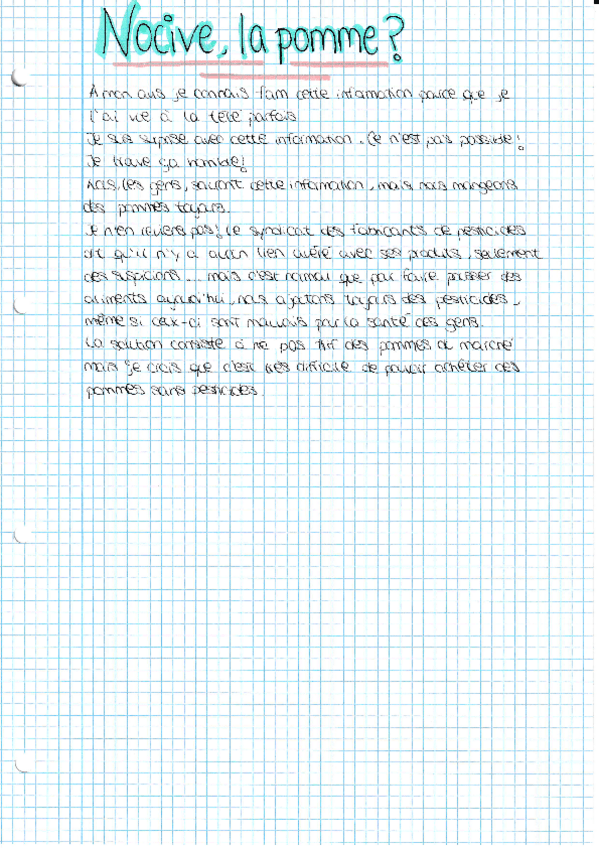 Nocive, la pomme?
A mon avis je connais cette information parce que je
l'ai vue à la télé parfois
Je suis surprise avec cette information. Ce n'est pas possible!
Je trouve ça horrible!
les gens, savont cette information, mais nous mangeons
des pommes toujours.
Je n'en reviens pas! Le syndicat des fabricants de pesticides
dit qu'il n'y a aucun lien avéré avec ses produits, seulement
des suspicions... mais c'est normal que pour faire pousser des
aliments aujourd'hui, nous ajoutons toujours des pesticides,
même si ceux-ci sont mauvais pour la santé des gens.
La solution consiste à ne pas des pommes au marché
mais je crois que c'est très difficile de pouvoir acheter des
pommes sans pesticides.